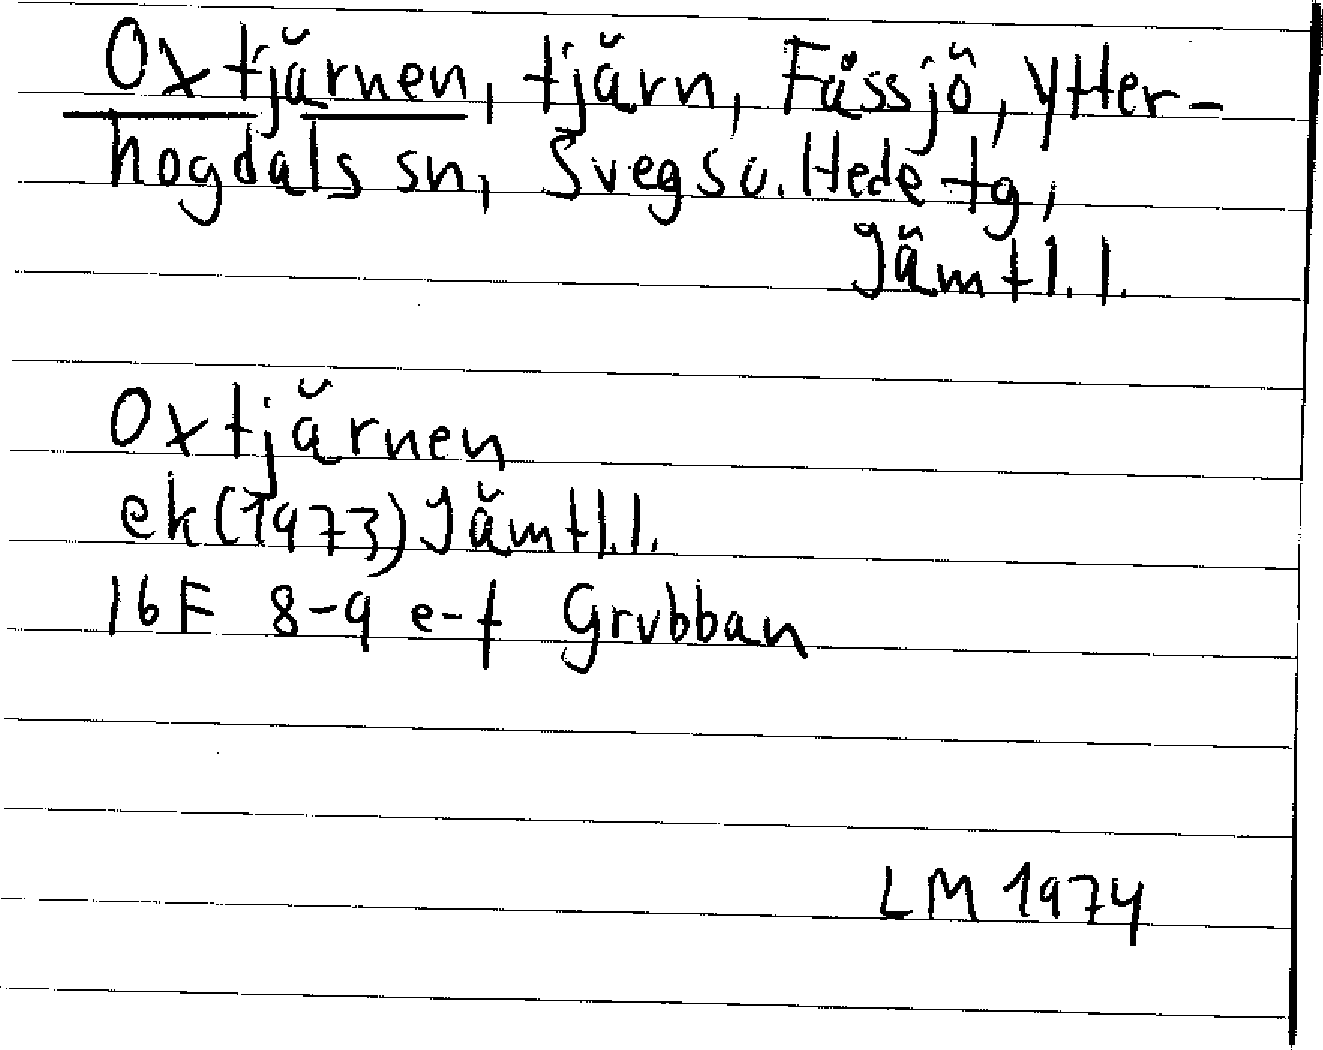 Oxtjärnen, tjärn, Fåssjö, Ytter-
hogdals sn, Svegs o. Hede tg,
Jämtl. l.
Oxtjärnen
ek (1973) Jämtl. l.
16F 8-9 e-f Grubban
LM 1974